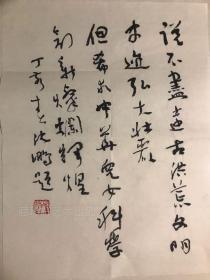 说不尽远古洪荒文明
未迹弘大壮丽
但希中华儿女科学
创新灿烂辉煌
丁亥 沈鹏题